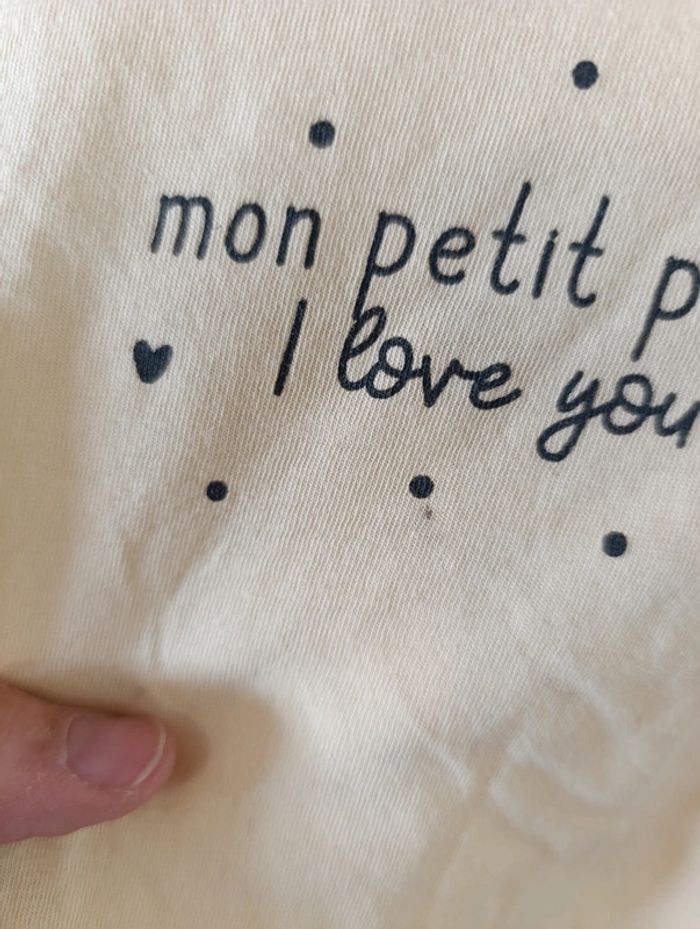 mon petit p
I love you